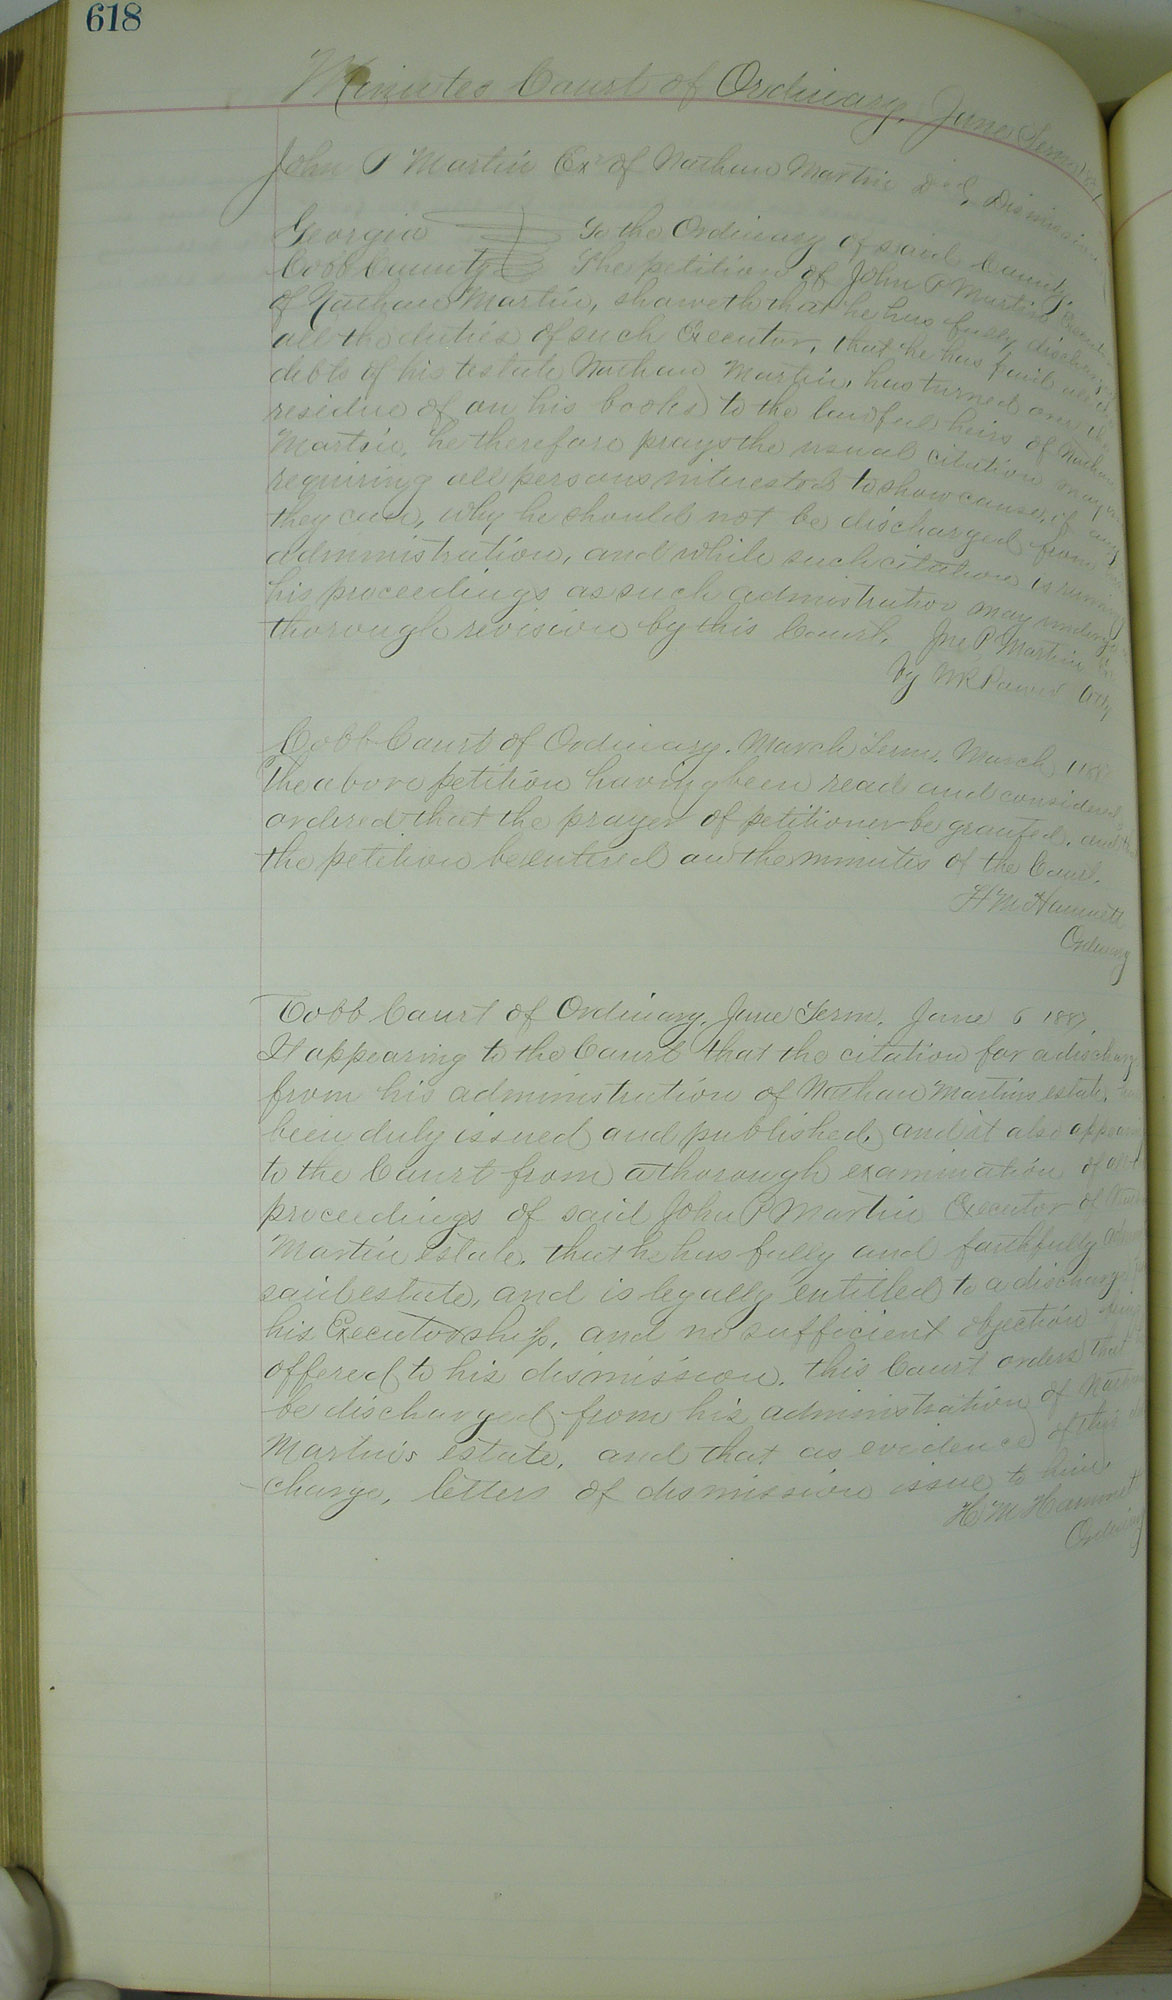 618
Minutes Court of Ordinary, June Term 1887
John P Martin Exr of Nathan Martin Decd, Dismission
Georgia To the Ordinary of said County
Cobb County The petition of John P Martin Executor
of Nathan Martin, showeth that he has fully discharged
all the duties of such Executor, that he has paid all the
debts of his testate Nathan Martin, has turned over the
residue of on his books to the lawful heirs of Nathan
Martin, he therefore prays the usual citation may
requiring all persons interested to show cause, if any
they can, why he should not be discharged from his
administration, and while such citation is running
his proceedings as such administrator may undergo
thorough revision by this Court. Jno P Martin
by W R Power Atty
Cobb Court of Ordinary. March Term. March 1887
The above petition having been read and considered,
ordered that the prayer of petitioner be granted, and
the petition be entered on the minutes of the Court.
H M Hammett
Ordinary
Cobb Court of Ordinary. June Term. June 6 1887.
It appearing to the Court that the citation for a discharge
from his administration of Nathan Martins estate,
been duly issued and published, and it also appearing
to the Court from a thorough examination of all
proceedings of said John P Martin Executor of Nathan
Martin estate. that he has fully and faithfully
said estate, and is legally entitled to a discharge
his Executorship, and no sufficient objection being
offered to his dismission. this Court orders that
be discharged from his administration of Nathan
Martin's estate, and that as evidence of this dis
charge, letters of dismission issue to him.
H M Hammett
Ordinary